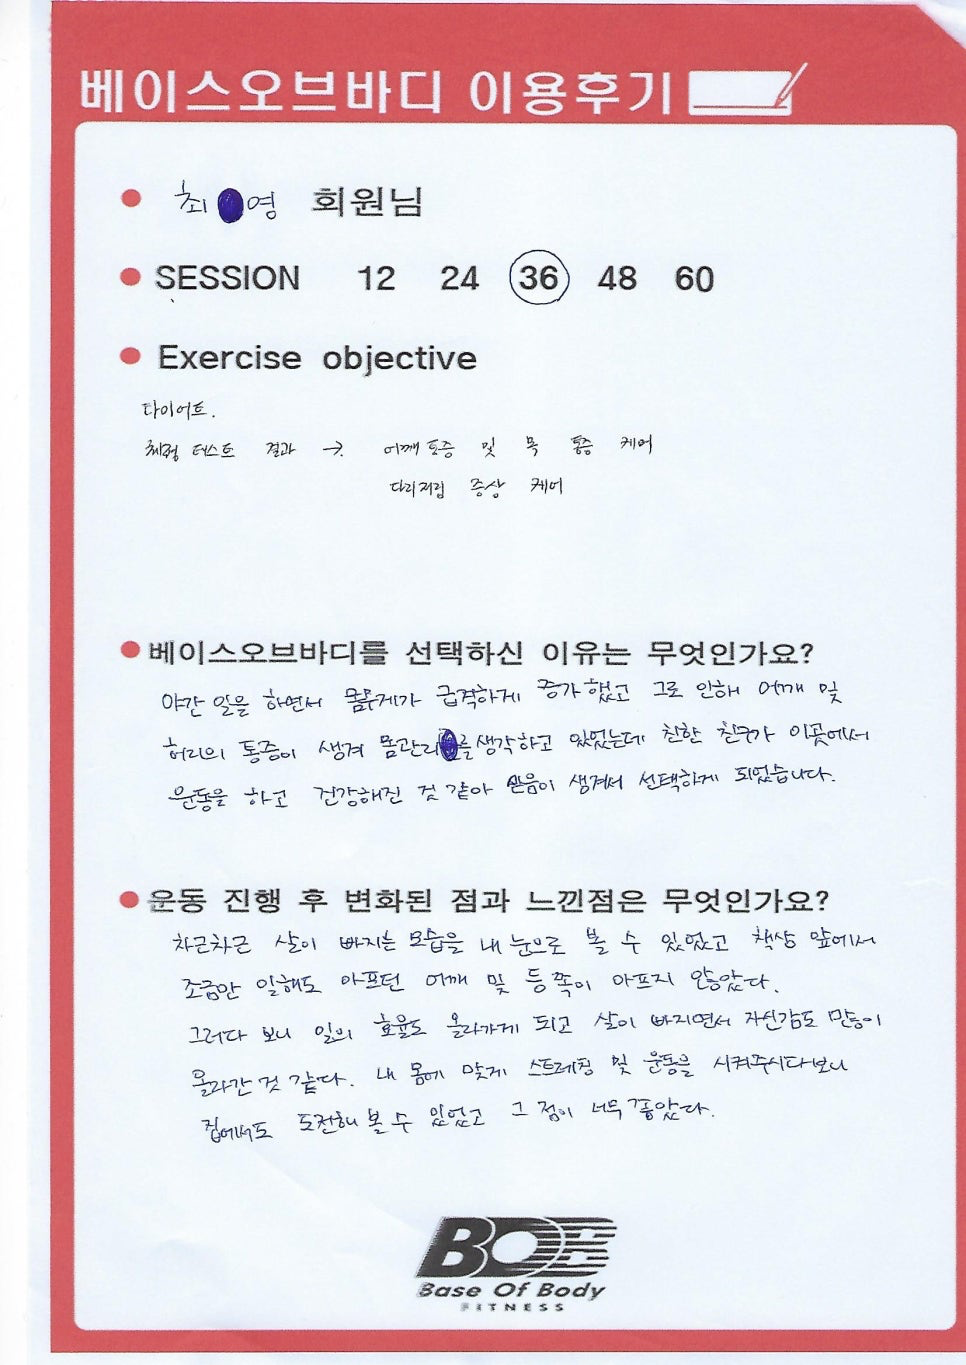 베이스오브바디 이용후기
최 영 회원님
SESSION 12 24 36 48 60
Exercise objective
다이어트.
체형 테스트 결과 → 어깨통증 및 목 통증 케어
다리저림 증상 케어
베이스오브바디를 선택하신 이유는 무엇인가요?
야간 일을 하면서 몸무게가 급격하게 증가했고 그로 인해 어깨 및
허리의 통증이 생겨 몸관리를 생각하고 있었는데 친한 친구가 이곳에서
운동을 하고 건강해진 것 같아 믿음이 생겨서 선택하게 되었습니다.
운동 진행 후 변화된 점과 느낀점은 무엇인가요?
차근차근 살이 빠지는 모습을 내 눈으로 볼 수 있었고 책상 앞에서
조금만 일해도 아프던 어깨 및 등 쪽이 아프지 않았다.
그러다 보니 일의 효율도 올라가게 되고 살이 빠지면서 자신감도 많이
올라간 것 같다. 내 몸에 맞게 스트레칭 및 운동을 시켜주시다보니
집에서도 도전해 볼 수 있었고 그 점이 너무 좋았다.
BOB
Base Of Body
FITNESS